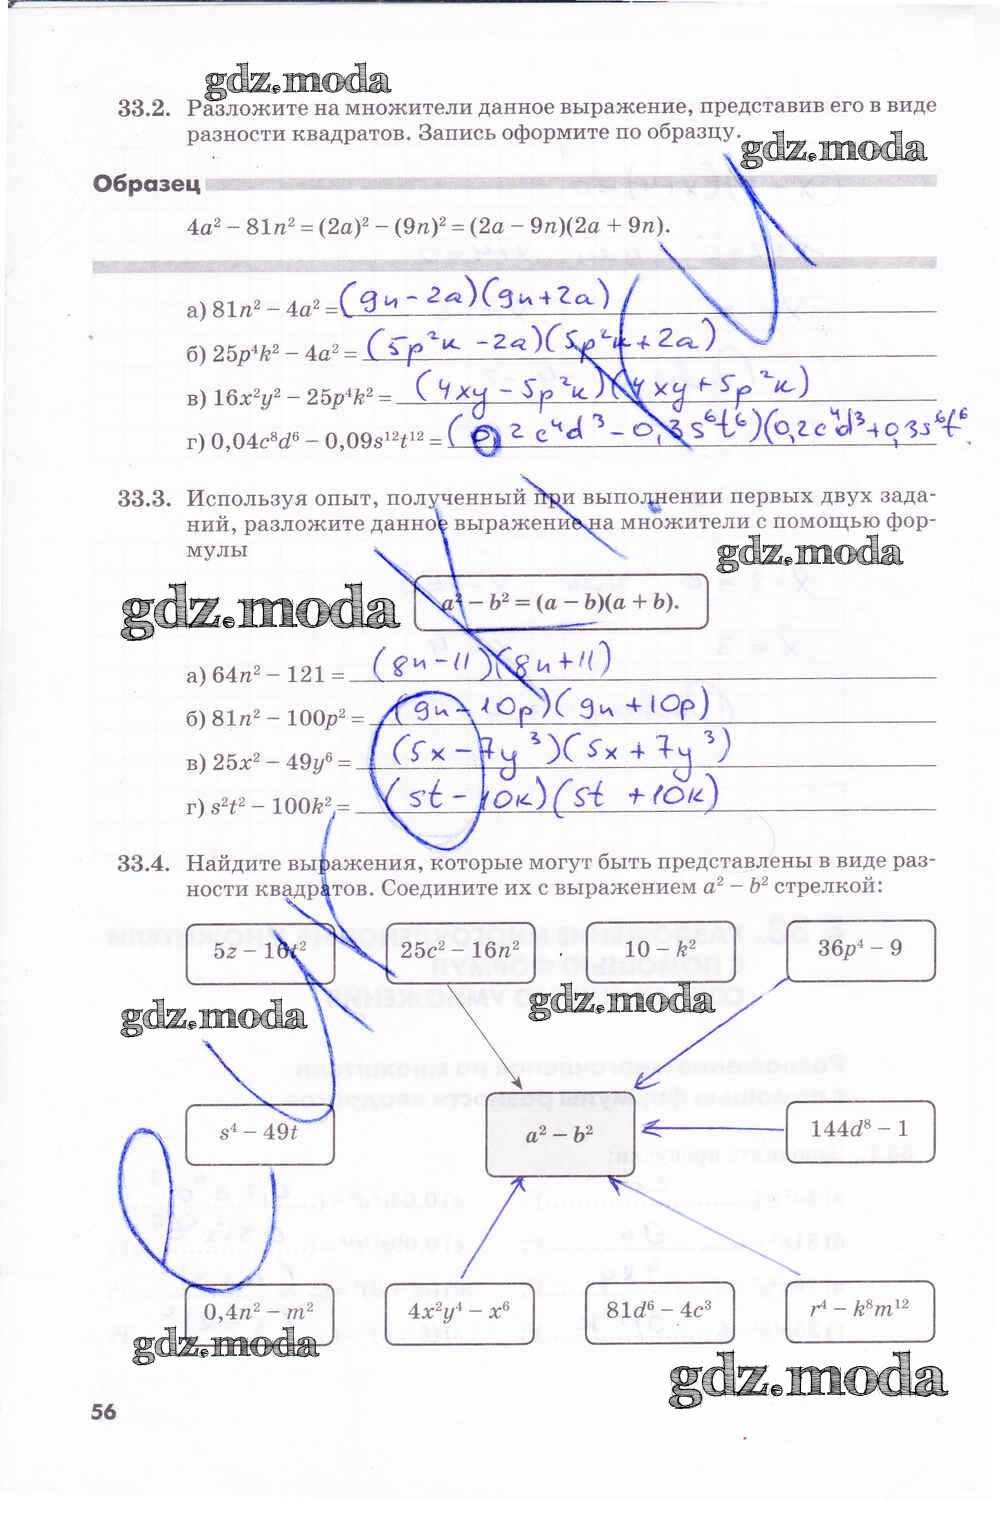 gdz.moda
33.2. Разложите на множители данное выражение, представив его в виде
разности квадратов. Запись оформите по образцу.
gdz.moda
Образец
4a² − 81n² = (2a)² − (9n)² = (2a − 9n)(2a + 9n).
а) 81n² − 4a² = (9n − 2a)(9n + 2a)
б) 25p⁴k² − 4a² = (5p²k − 2a)(5p²k + 2a)
в) 16x²y² − 25p⁴k² = (4xy − 5p²k)(4xy + 5p²k)
г) 0,04c⁸d⁶ − 0,09s¹²t¹² = (0,2c⁴d³ − 0,3s⁶t⁶)(0,2c⁴d³ + 0,3s⁶t⁶
33.3. Используя опыт, полученный при выполнении первых двух зада-
ний, разложите данное выражение на множители с помощью фор-
мулы
gdz.moda
gdz.moda
a² − b² = (a − b)(a + b).
а) 64n² − 121 = (8n − 11)(8n + 11)
б) 81n² − 100p² = (9n − 10p)(9n + 10p)
в) 25x² − 49y⁶ = (5x − 7y³)(5x + 7y³)
г) s²t² − 100k² = (st − 10k)(st + 10k)
33.4. Найдите выражения, которые могут быть представлены в виде раз-
ности квадратов. Соедините их с выражением a² − b² стрелкой:
5z − 16t² 25c² − 16n² 10 − k² 36p⁴ − 9
gdz.moda gdz.moda
s⁴ − 49t a² − b² 144d⁸ − 1
0,4n² − m² 4x²y⁴ − x⁶ 81d⁶ − 4c³ r⁴ − k⁸m¹²
gdz.moda
gdz.moda
56